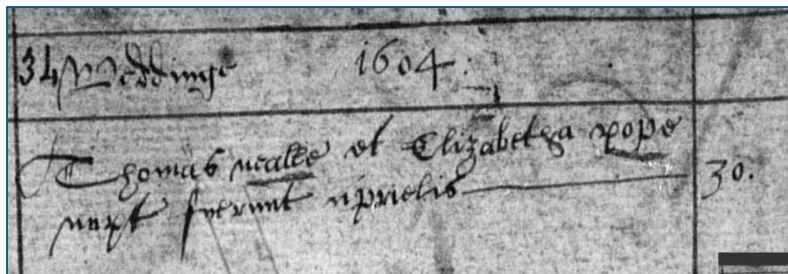 34 Weddinge 1604.
Thomas nealle et Elizabetha pope
nupt fuerunt Aprielis 30.